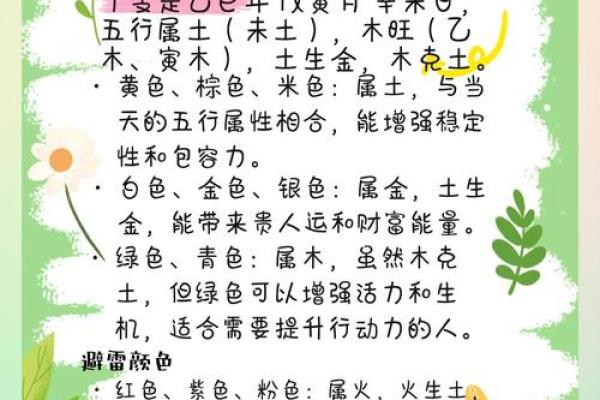 干支是乙巳年戊寅月辛未日，
五行属土（未土），木旺（乙
木、寅木），土生金，木克土。
· 黄色、棕色、米色：属土，与当
天的五行属性相合，能增强稳定
性和包容力。
· 白色、金色、银色：属金，土生
金，能带来贵人运和财富能量。
· 绿色、青色：属木，虽然木克
土，但绿色可以增强活力和生
机，适合需要提升行动力的人。
避雷颜色
· 红色、紫色、粉色：属火，火生土，